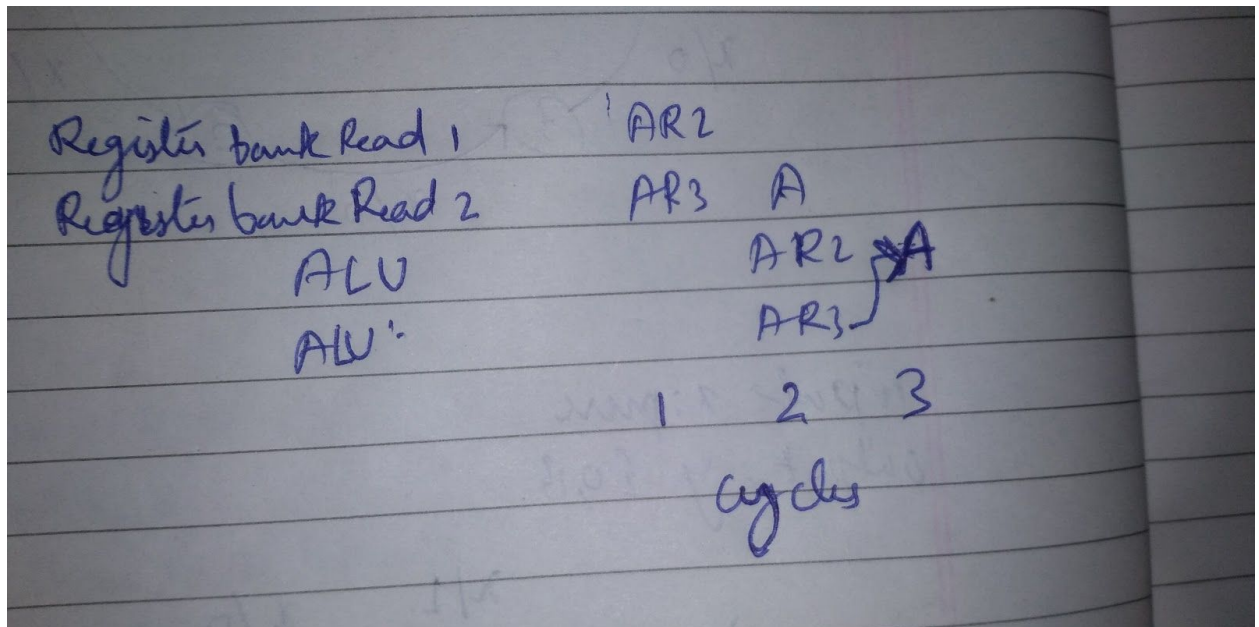 Register bank Read 1 AR2
Register bank Read 2 AR3 A
ALU AR2 A
ALU AR3
1 2 3
cycles